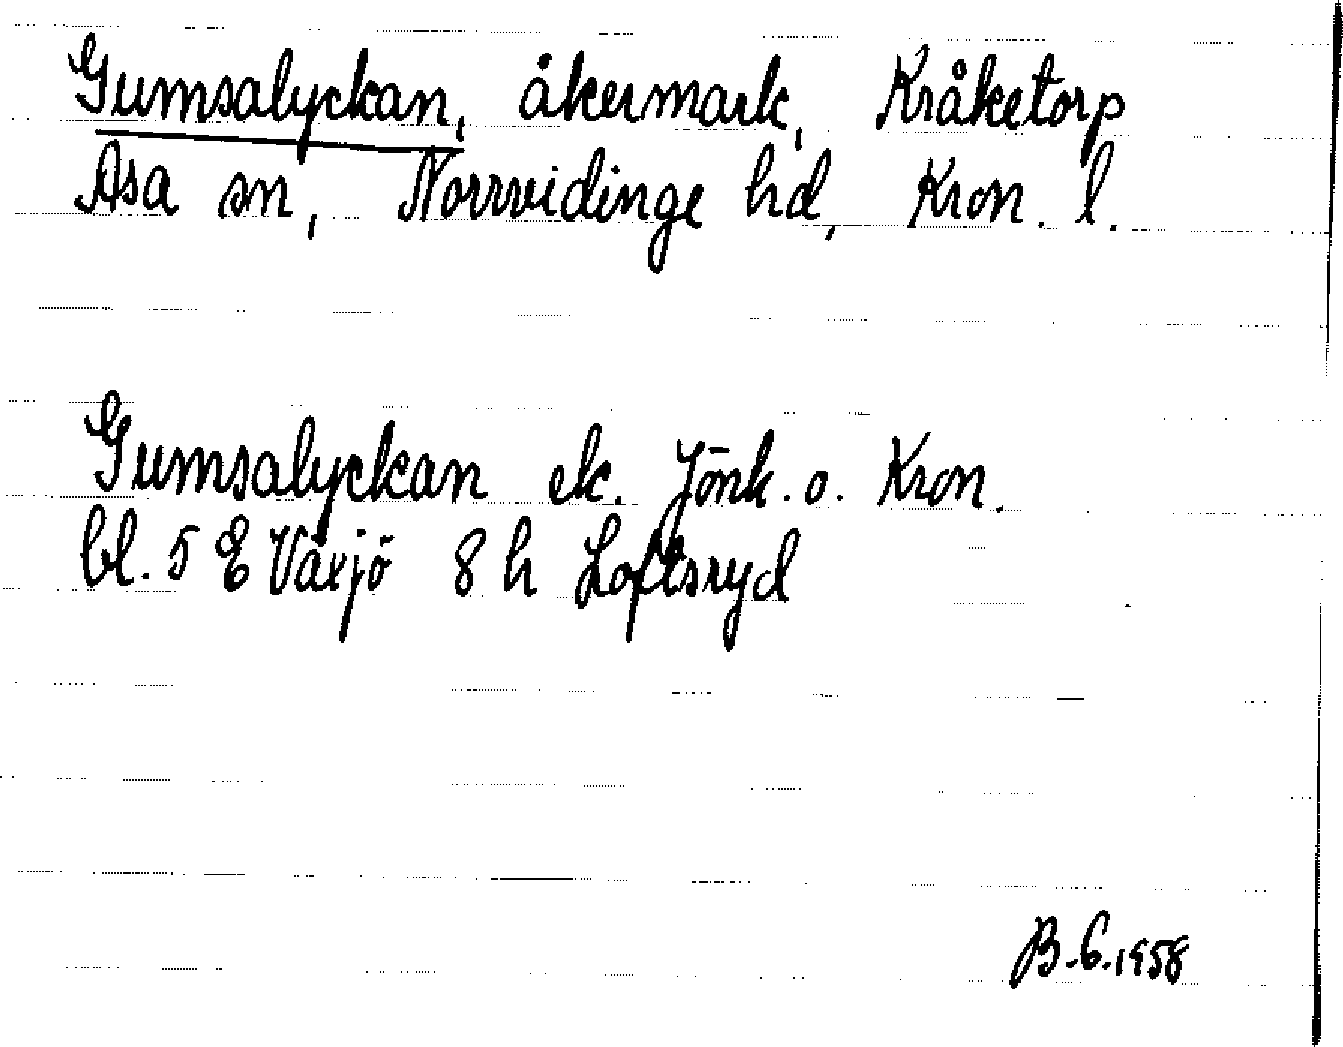 Gumsalyckan, åkermark, Kråketorp
Asa sn, Norrvidinge hd, Kron. l.
Gumsalyckan ek. Jönk. o. Kron.
bl. 5 E Växjö 8 h Loftsryd
B.G.1958